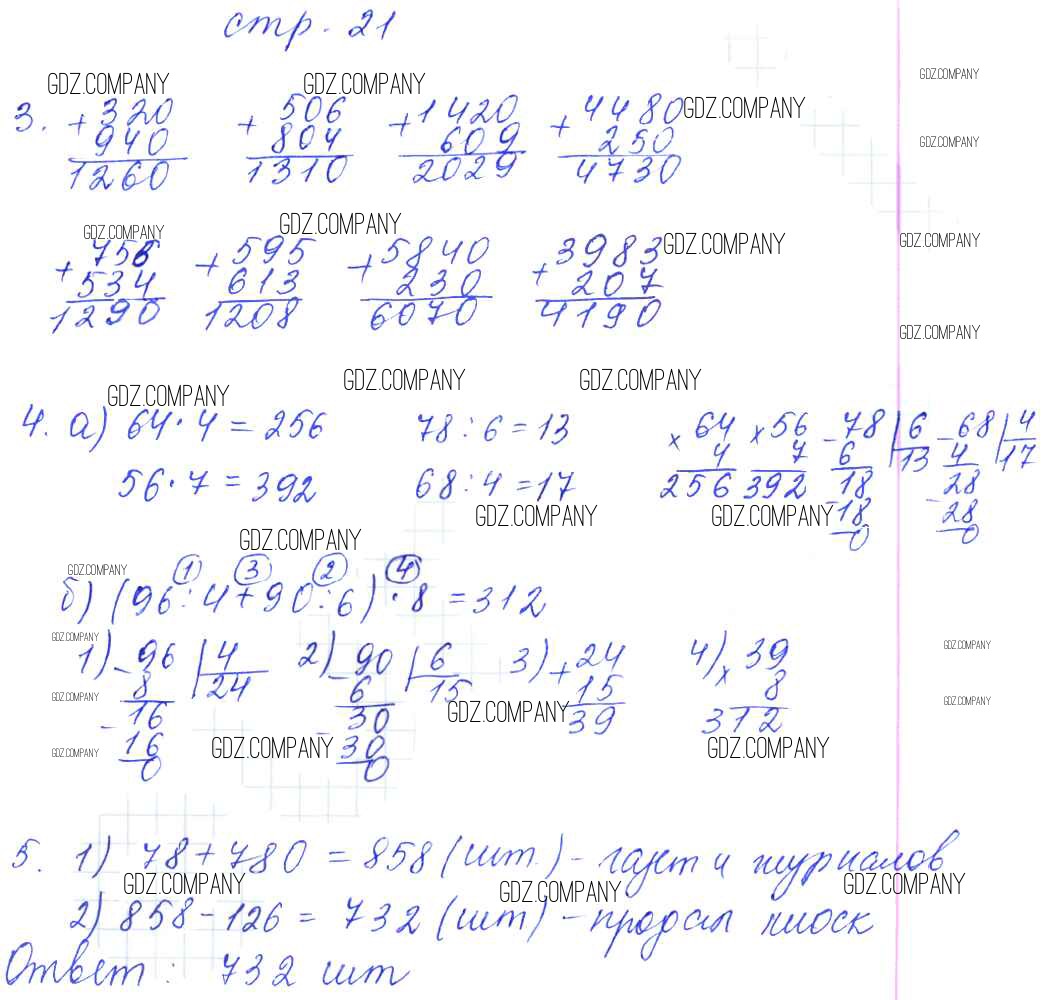 стр. 21
GDZ.COMPANY GDZ.COMPANY GDZ.COMPANY
3. + 320 + 506 + 1420 + 4480 GDZ.COMPANY
940 804 609 250 GDZ.COMPANY
1260 1310 2029 4730
GDZ.COMPANY GDZ.COMPANY
+ 756 + 595 + 5840 + 3983 GDZ.COMPANY GDZ.COMPANY
534 613 230 207
1290 1208 6070 4190
GDZ.COMPANY
GDZ.COMPANY GDZ.COMPANY GDZ.COMPANY
4. а) 64 · 4 = 256 78 : 6 = 13 × 64 × 56 - 78 | 6 - 68 | 4
4 7 6 13 4 17
56 · 7 = 392 68 : 4 = 17 256 392 18 28
GDZ.COMPANY GDZ.COMPANY - 18 - 28
GDZ.COMPANY 0 0
GDZ.COMPANY 1 3 2 4
б) (96 : 4 + 90 : 6) · 8 = 312
GDZ.COMPANY GDZ.COMPANY
1) - 96 | 4 2) - 90 | 6 3) + 24 4) × 39
8 24 6 15 15 8
GDZ.COMPANY GDZ.COMPANY GDZ.COMPANY
- 16 - 30 39 312
16 30
GDZ.COMPANY GDZ.COMPANY GDZ.COMPANY
0 0
5. 1) 78 + 780 = 858 (шт.) - газет и журналов
GDZ.COMPANY GDZ.COMPANY GDZ.COMPANY
2) 858 - 126 = 732 (шт) - продал киоск
Ответ : 732 шт